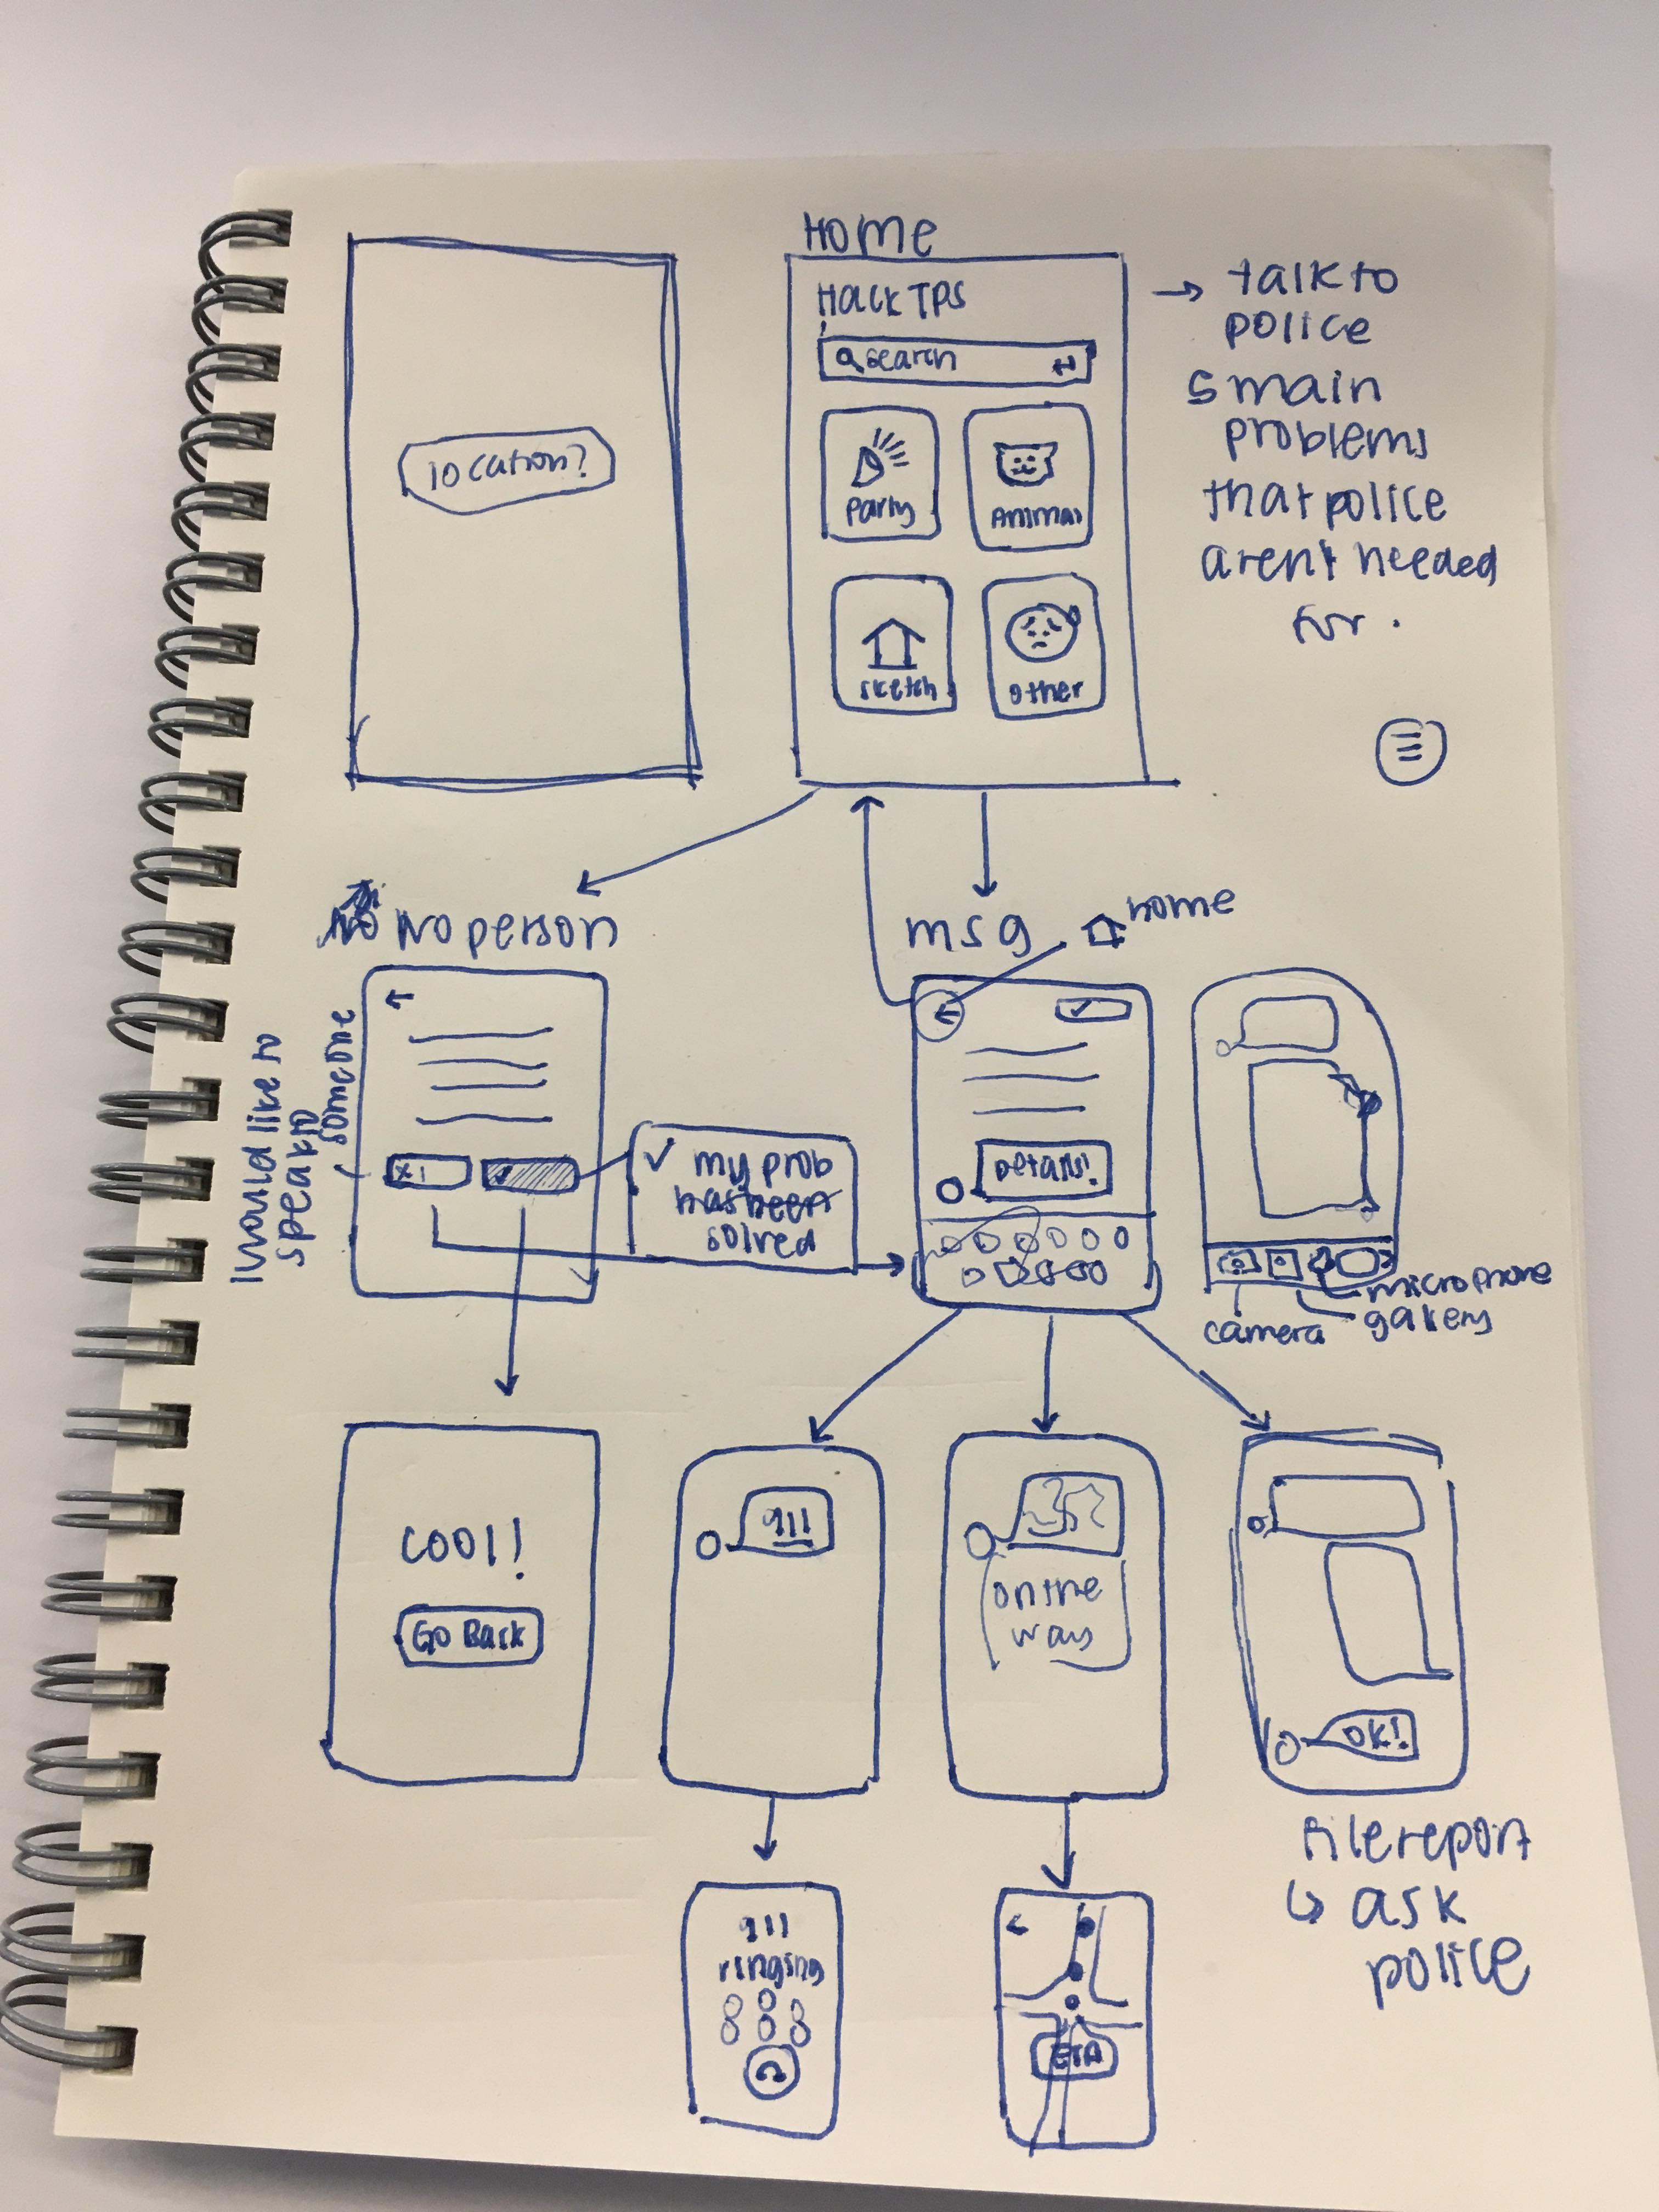 location?
Home
Hack TPS
search
Party
Animal
sketch
other
→ talk to
police
5 main
problems
that police
aren't needed
for.
No person
I would like to
speak to
someone
x
✓
✓ my prob
has been
solved
msg
home
✓
Details!
camera
microphone
gallery
cool!
Go Back
911
on the
way
OK!
911
ringing
ETA
file report
↳ ask
police